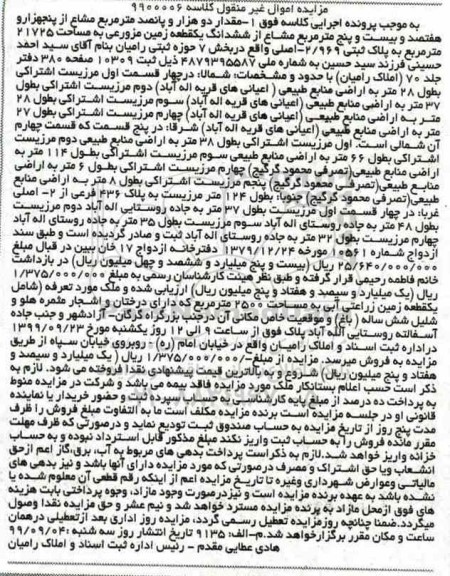 مزایده اموال غیر منقول کلاسه ۹۹۰۰۰۰۶
به موجب پرونده اجرایی کلاسه فوق ۱-مقدار دو هزار و پانصد مترمربع مشاع از پنجهزارو
هفتصد و بیست و پنج مترمربع مشاع از ششدانگ یکقطعه زمین مزروعی به مساحت ۲۱۷۲۵
مترمربع به پلاک ثبتی ۲/۹۶۹-اصلی واقع دربخش ۷ حوزه ثبتی رامیان بنام آقای سید احمد
حسینی فرزند سید حسین به شماره ملی ۴۸۷۹۳۹۵۵۸۷ ذیل ثبت ۱۰۳۰۹ صفحه ۳۸۰ دفتر
جلد ۷۰ (املاک رامیان) با حدود و مشخصات: شمالا: درچهار قسمت اول مرزیست اشتراکی
بطول ۲۸ متر به اراضی منابع طبیعی ( اعیانی های قریه اله آباد) دوم مرزیست اشتراکی بطول
۳۷ متر به اراضی منابع طبیعی (اعیانی های قریه اله آباد) سوم مرزیست اشتراکی بطول ۲۸
متر به اراضی منابع طبیعی (اعیانی های قریه اله آباد) چهارم مرزیست اشتراکی بطول ۲۷
متر به اراضی منابع طبیعی (اعیانی های قریه اله آباد) شرقا: در پنج قسمت که قسمت چهارم
آن شمالی است. اول مرزیست اشتراکی بطول ۳۸ متر به اراضی منابع طبیعی دوم مرزیست
اشتراکی بطول ۶۶ متر به اراضی منابع طبیعی سوم مرزیست اشتراکی بطول ۱۱۴ متر به
اراضی منابع طبیعی(تصرفی محمود گرگیج) چهارم مرزیست اشتراکی بطول ۶ متر به اراضی
منابع طبیعی(تصرفی محمود گرگیج) پنجم مرزیست اشتراکی بطول ۸ متر به اراضی منابع
طبیعی(تصرفی محمود گرگیج) جنوبا: بطول ۱۲۴ متر مرزیست به پلاک ۴۳۶ فرعی از ۲- اصلی
غربا: در چهار قسمت اول مرزیست بطول ۳۷ متر به جاده روستایی اله آباد دوم مرزیست
بطول ۴۸ متر به جاده روستای اله آباد سوم مرزیست بطول ۳۵ متر به جاده روستای اله آباد
چهارم مرزیست بطول ۳۲ متر به جاده روستای اله آباد ثبت و صادر گردیده است و طبق سند
ازدواج شماره ۱۰۵۶۱ مورخه ۱۳۷۹/۱۲/۲۴ دفترخانه ازدواج ۱۷ خان ببین در قبال مبلغ
۲۵/۶۴۰/۰۰۰/۰۰۰ ریال (بیست و پنج میلیارد و ششصد و چهل میلیون ریال) در بازداشت
خانم فاطمه رحیمی قرار گرفته و طبق نظر هیئت کارشناسان رسمی به مبلغ ۱/۳۷۵/۰۰۰/۰۰۰
ریال (یک میلیارد و سیصد و هفتاد و پنج میلیون ریال) ارزیابی شده و ملک مورد تعرفه (شامل
یکقطعه زمین زراعتی آبی به مساحت ۲۵۰۰ مترمربع که دارای درختان و اشجار مثمره هلو و
شلیل شش ساله (باغ) و موقعیت خاص مکانی آن درجنب بزرگراه گرگان- آزادشهر و جنب جاده
آسفالته روستایی اله آباد پلاک فوق از ساعت ۹ الی ۱۲ روز یکشنبه مورخ ۱۳۹۹/۰۹/۲۳
دراداره ثبت اسناد و املاک رامیان واقع در خیابان امام (ره) - روبروی خیابان سپاه از طریق
مزایده به فروش میرسد. مزایده از مبلغ-/۱/۳۷۵/۰۰۰/۰۰۰ ریال ( یک میلیارد و سیصد و
هفتاد و پنج میلیون ریال) شروع و به بالاترین قیمت پیشنهادی نقدا فروخته می شود. لازم به
ذکر است حسب اعلام بستانکار ملک مورد مزایده فاقد بیمه می باشد و شرکت در مزایده منوط
به پرداخت ده درصد از مبلغ پایه کارشناسی به حساب سپرده ثبت و حضور خریدار یا نماینده
قانونی او در جلسه مزایده است برنده مزایده مکلف است ما به التفاوت مبلغ فروش را ظرف
مدت پنج روز از تاریخ مزایده به حساب صندوق ثبت تودیع نماید و درصورتی که ظرف مهلت
مقرر مانده فروش را به حساب ثبت واریز نکند مبلغ مذکور قابل استرداد نبوده و به حساب
خزانه واریز خواهد شد.لازم به ذکراست پرداخت بدهی های مربوط به آب، برق،گاز اعم ازحق
انشعاب ویا حق اشتراک و مصرف درصورتی که مورد مزایده دارای آنها باشد و نیز بدهی های
مالیاتی وعوارض شهرداری وغیره تا تاریخ مزایده اعم از اینکه رقم قطعی آن معلوم شده یا
نشده باشد به عهده برنده مزایده است و نیزدرصورت وجود مازاد، وجوه پرداختی بابت هزینه
های فوق ازمحل مازاد به برنده مزایده مسترد خواهد شد و نیم عشر و حق مزایده نقدا وصول
میگردد.ضمنا چنانچه روزمزایده تعطیل رسمی گردد، مزایده روز اداری بعد ازتعطیلی درهمان
ساعت و مکان مقرر برگزارخواهد شد.م-الف: ۹۱۳۵ تاریخ انتشار روز سه شنبه :۹۹/۰۹/۰۴
هادی عطایی مقدم - رئیس اداره ثبت اسناد و املاک رامیان